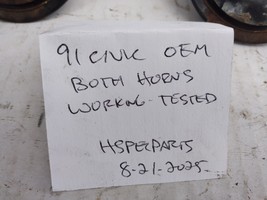 91 CIVIC OEM
BOTH HORNS
WORKING-TESTED
HSPECPARTS
8-21-2025